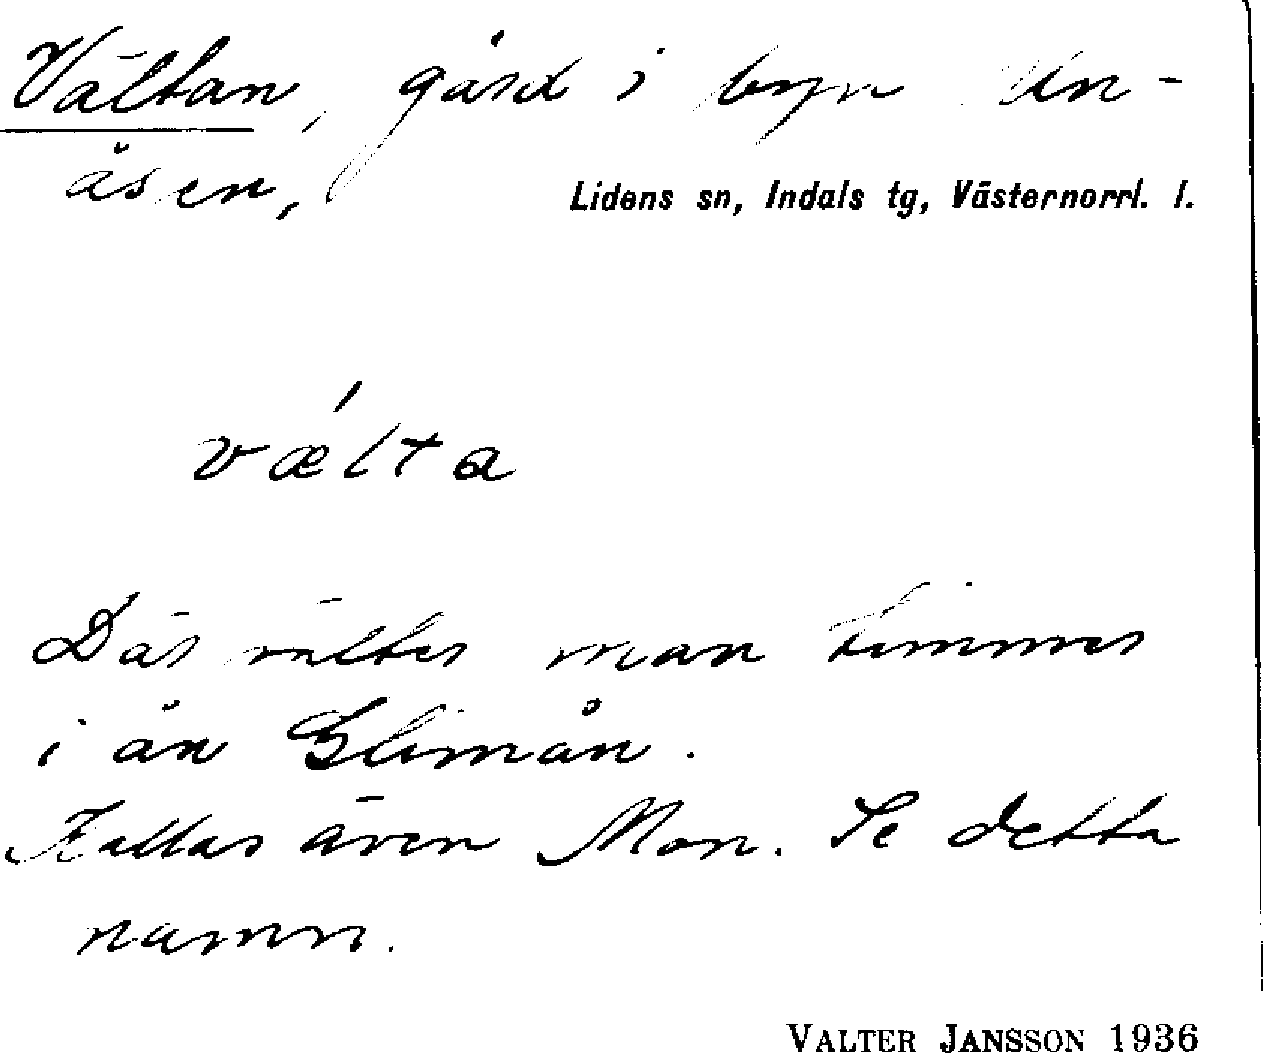 Vältan, gård i byn Un-
åsen,
Lidens sn, Indals tg, Västernorrl. l.
vǽlta
Där välter man timmer
i ån Glimån.
Kallas även Mon. Se detta
namn.
VALTER JANSSON 1936